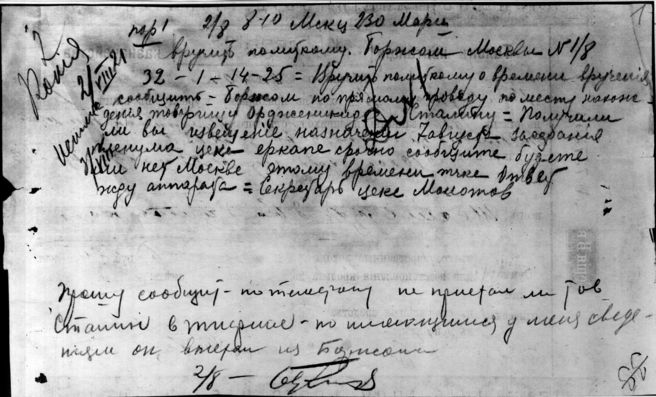 Копия
пор 1 2/8 8-10 Мскц 230 Марц
вручить политкому. Боржом Москвы N 1/8
32 - 1 - 14-25 = Вручить политкому о времени вручения
сообщить - Боржом по прямому проводу по месту нахож-
дения товарищу Орджоникидзе Сталину = Получили
ли вы извещение назначении 7августа заседания
пленума цека еркапе срочно сообщите будете
или нет Москве этому времени тчк Ответ
жду аппарата = Секретарь цека Молотов
Прошу сообщить - по телефону не приехал ли Тов
Сталин в Тифлис - по имеющимся у меня сведе-
ниям он выехал из Боржома
2/8 -